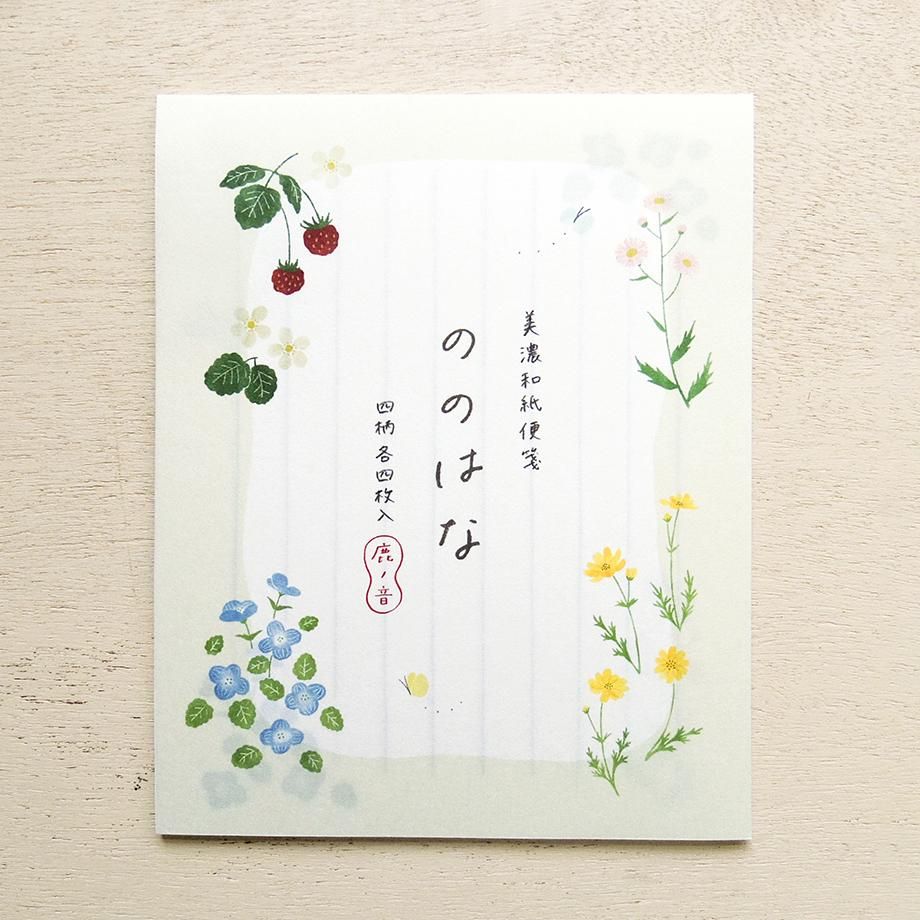 美濃和紙便箋
ののはな
四柄各四枚入
鹿ノ音